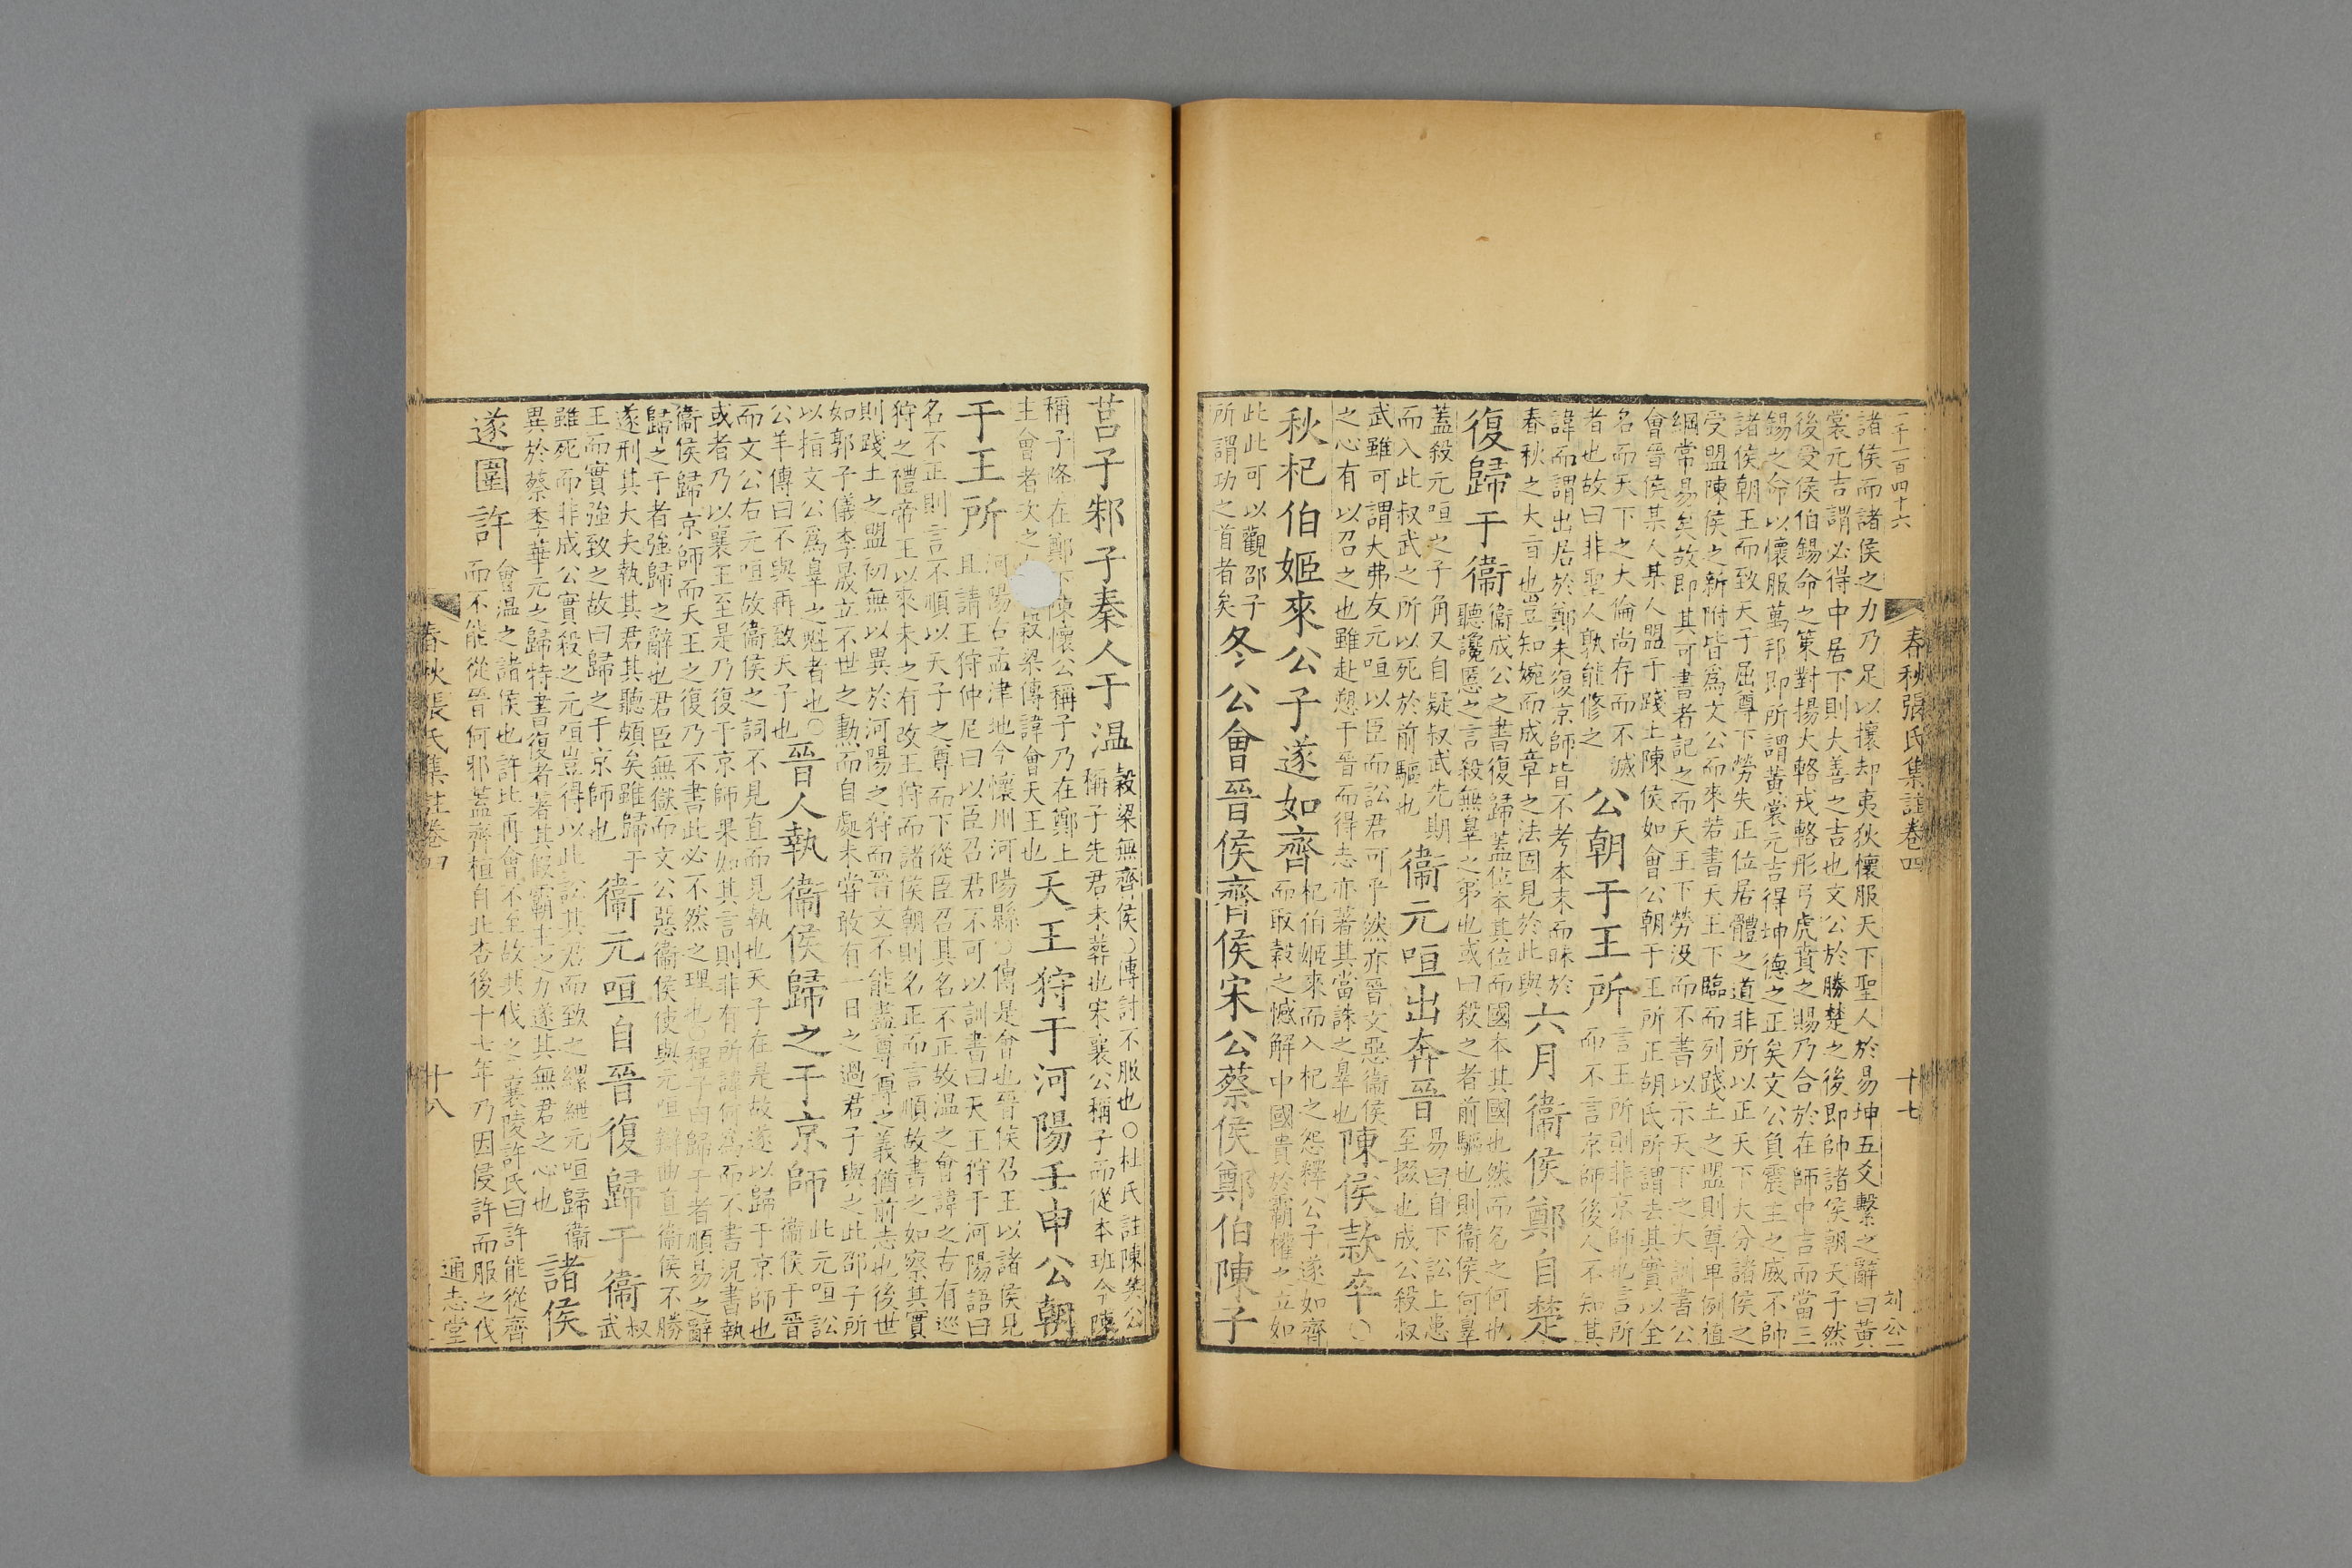 一千一百四十六
春秋張氏集註卷四
十七
刘公一
諸侯而諸侯之力乃足以攘却夷狄懷服天下聖人於易坤五爻繫之辭曰黃
裳元吉謂必得中居下則大善之吉也文公於勝楚之後即帥諸侯朝天子然
後受侯伯錫命之策對揚大輅戎輅彤弓虎賁之賜乃合於在師中吉而當三
錫之命以懷服萬邦即所謂黃裳元吉得坤德之正矣文公負震主之威不帥
諸侯朝王而致天子屈尊下勞失正位居體之道非所以正天下大分諸侯之
受盟陳侯之新附皆爲文公而來若書天王下臨而列踐土之盟則尊卑例植
綱常易矣故即其可書者記之而天王下勞没而不書以示天下之大訓書公
會晉侯某人某人盟于踐土陳侯如會公朝于王所正胡氏所謂去其實以全
名而天下之大倫尚存而不滅
者也故曰非聖人孰能修之
公朝于王所
言王所則非京師也言所
而不言京師後人不知其
諱而謂出居於鄭未復京師皆不考本末而昧於
春秋之大旨也豈知婉而成章之法固見於此與
六月衞侯鄭自楚
復歸于衞
衞成公之書復歸蓋位本其位而國本其國也然而名之何也
聽讒慝之言殺無辠之弟也或曰殺之者前驅也則衞侯何辠
蓋殺元咺之子角又自疑叔武先期
而入此叔武之所以死於前驅也
衞元咺出奔晉
易曰自下訟上患
至掇也成公殺叔
武雖可謂大弗友元咺以臣而訟君可乎然亦晉文惡衞侯
之心有以召之也雖赴愬于晉而得志亦著其當誅之辠也
陳侯款卒○
秋杞伯姬來公子遂如齊
杞伯姬來而入杞之怨釋公子遂如齊
而取穀之憾解中國貴於霸權之立如
此此可以觀邵子
所謂功之首者矣
冬公會晉侯齊侯宋公蔡侯鄭伯陳子
莒子邾子秦人于溫
穀梁無齊侯○傳討不服也○杜氏註陳共公
稱子先君未葬也宋襄公稱子而從本班今陳
稱子降在鄭下陳懷公稱子乃在鄭上
主會者次之 穀梁傳諱會天王也
天王狩于河陽壬申公朝
于王所
河陽古孟津地今懷州河陽縣○傳是會也晉侯召王以諸侯見
且請王狩仲尼曰以臣召君不可以訓書曰天王狩于河陽語曰
名不正則言不順以天子之尊而下從臣召其名不正故溫之會諱之古有巡
狩之禮帝王以來未之有改王狩而諸侯朝則名正而言順故書之如察其實
則踐土之盟初無以異於河陽之狩而晉文不能盡尊尊之義猶前志也後世
如郭子儀李晟立不世之勳而自處未嘗敢有一日之過君子與之此邵子所
以指文公爲辠之魁者也○
公羊傳曰不與再致天子也
晉人執衞侯歸之于京師
此元咺訟
衞侯于晉
而文公右元咺故衞侯之詞不見直而見執也天子在是故遂以歸于京師也
或者乃以襄王至是乃復于京師果如其言則非有所諱何爲而不書況書執
衞侯歸京師而天王之復乃不書此必不然之理也○程子曰歸于者順易之辭
歸之于者強歸之辭也君臣無獄而文公惡衞侯使與元咺辯曲直衞侯不勝
遂刑其大夫執其君其聽頗矣雖歸于
王而實強致之故曰歸之于京師也
衞元咺自晉復歸于衞
叔
武
雖死而非成公實殺之元咺豈得以此訟其君而致之縲紲元咺歸衞
異於蔡季華元之歸特書復者著其假霸主之力遂其無君之心也
諸侯
遂圍許
會溫之諸侯也許比再會不至故共伐之襄陵許氏曰許能從齊
而不能從晉何邪蓋齊桓自北杏後十七年乃因侵許而服之伐
春秋張氏集註卷四
十八
通志堂